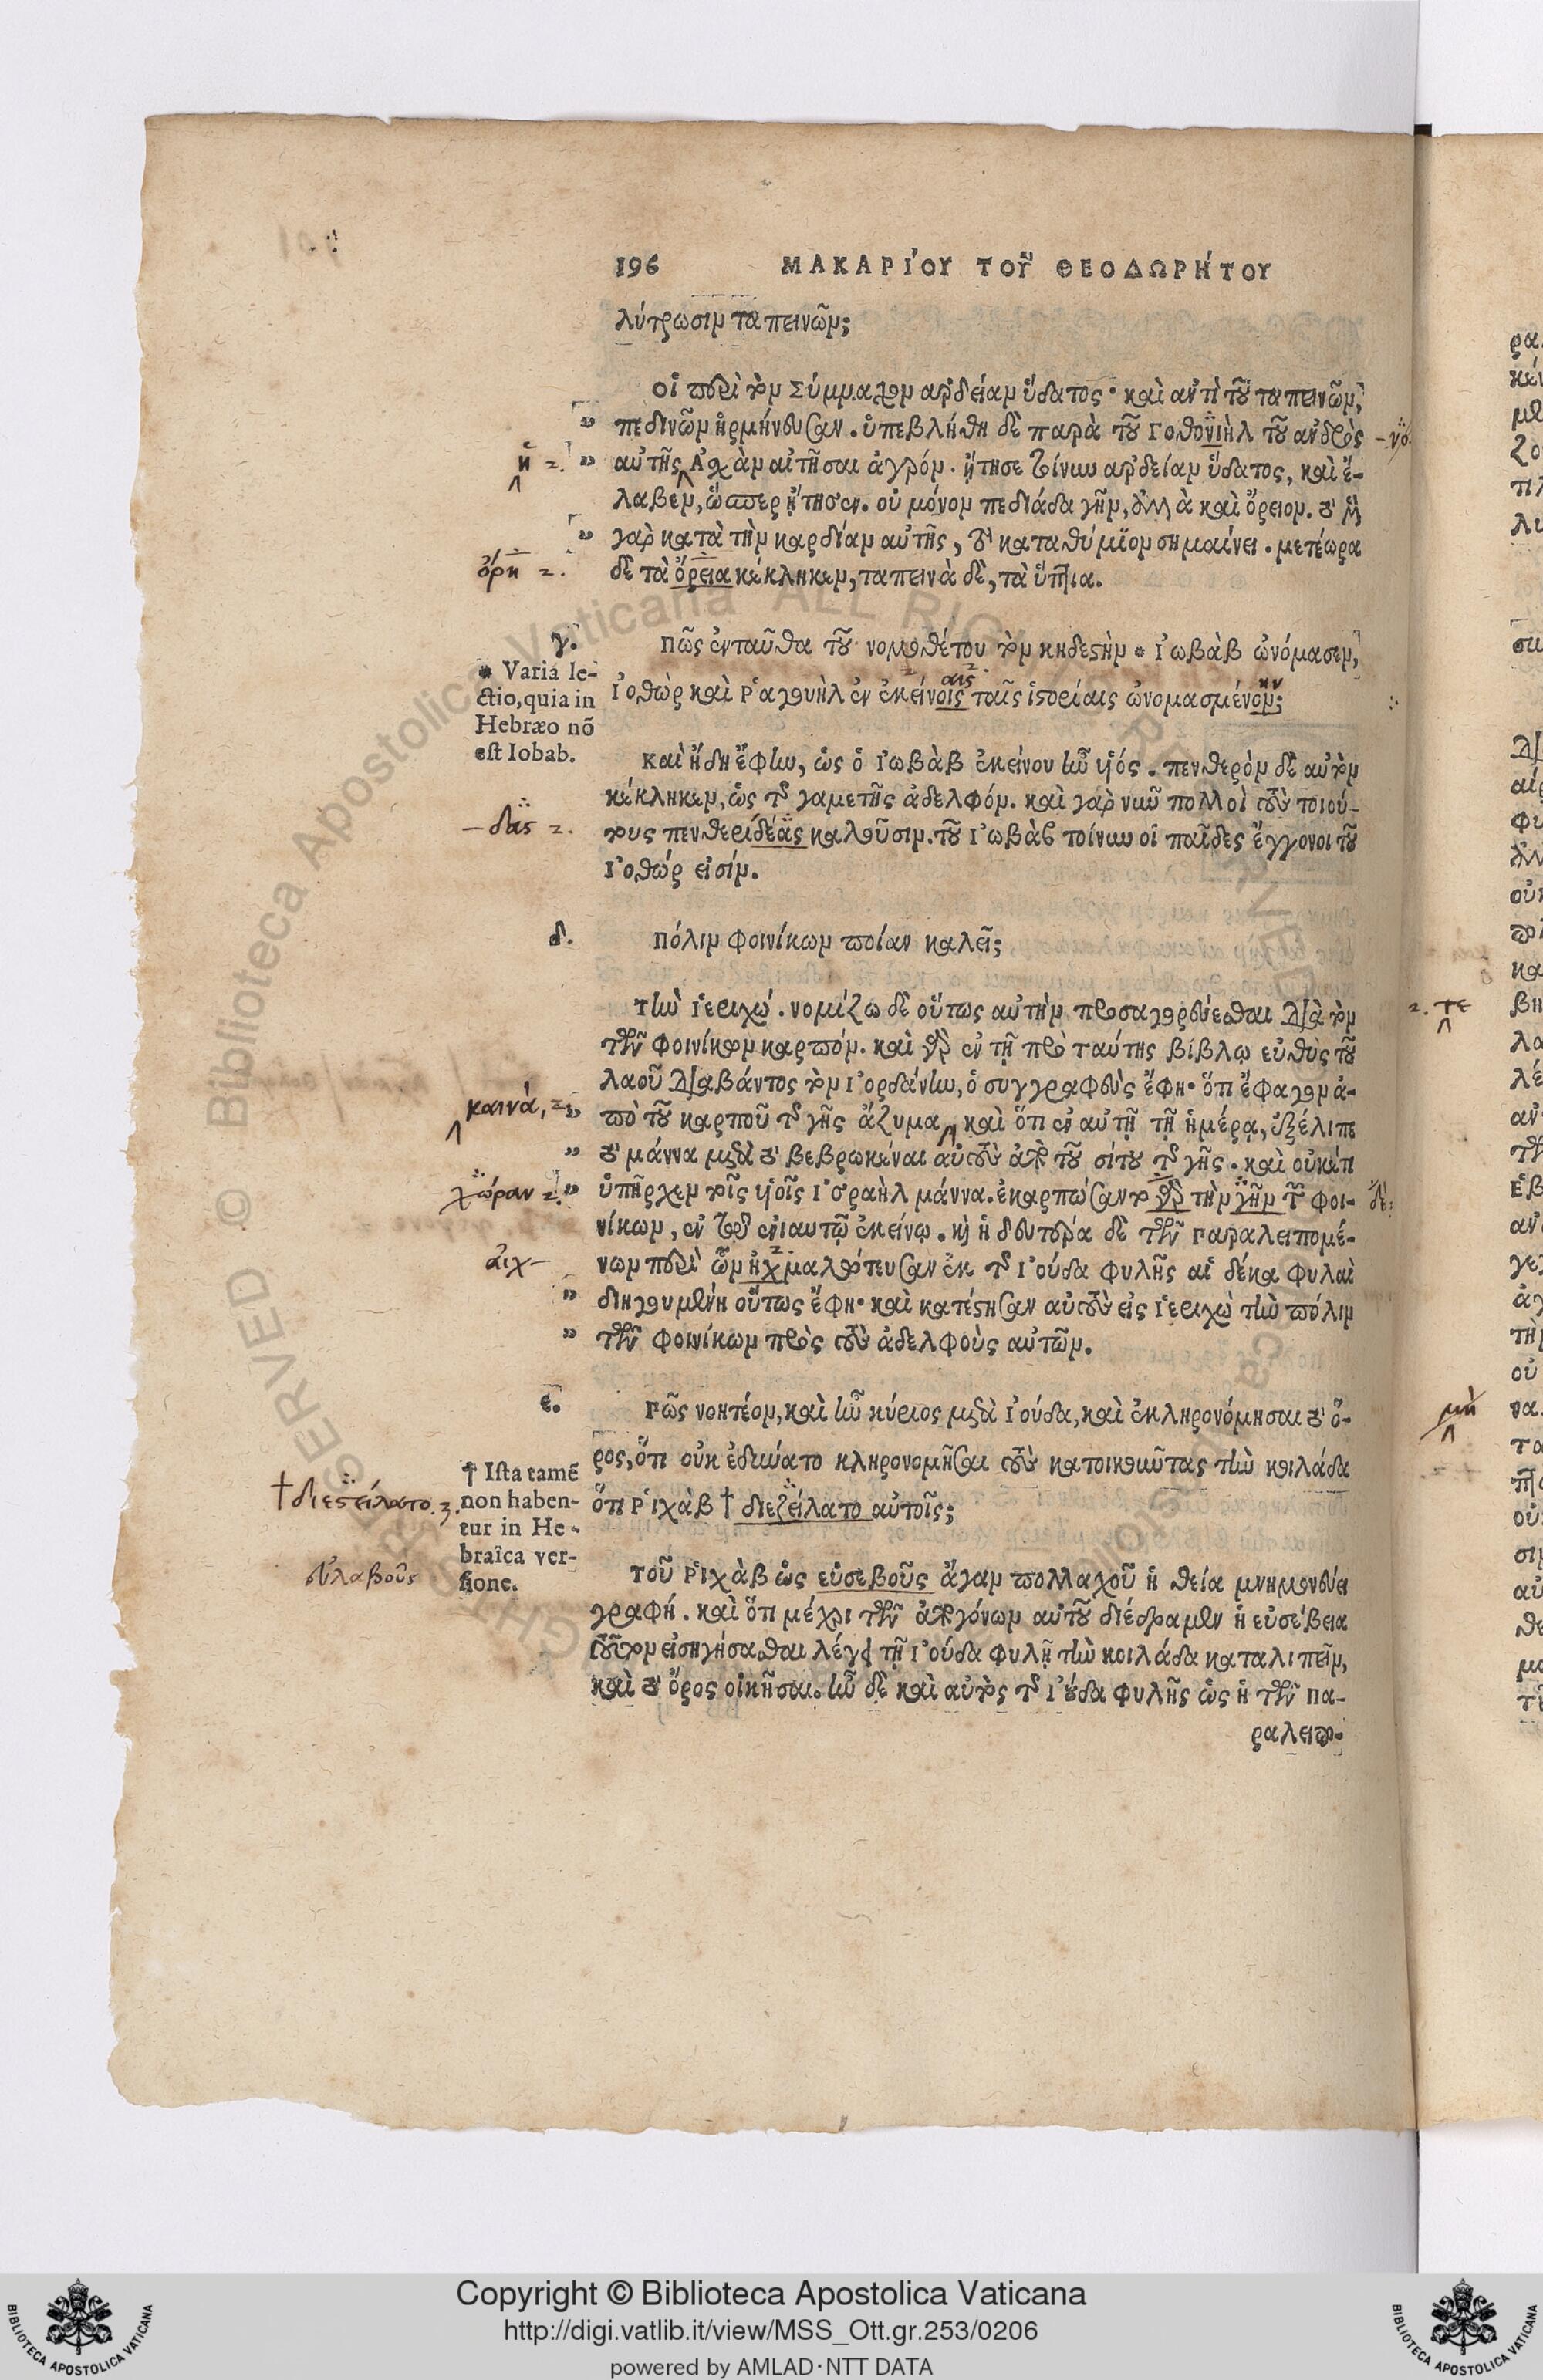 196 ΜΑΚΑΡΊΟΥ ΤΟΥ͂ ΘΕΟΔΩΡΉΤΟΥ
λύτρωσιν ταπεινῶν;
οἱ περὶ τὸν Σύμμαχον ἀρδείαν ὕδατος· καὶ ἀντὶ τοῦ ταπεινῶν,
” πεδινῶν ἡρμήνευσαν. ὑπεβλήθη δὲ παρὰ τοῦ Γοθονιὴλ τοῦ ἀνδρὸς –νο
ἡ 2. ” αὐτῆς Ἀχὰν αἰτῆσαι ἀγρόν. ᾔτησε τοίνυν ἀρδείαν ὕδατος, καὶ ἔ-
λαβεν, ὥσπερ ᾔτησεν. οὐ μόνον πεδιάδα γῆν, ἀλλὰ καὶ ὄρειον. τὸ
” γὰρ κατὰ τὴν καρδίαν αὐτῆς, τὸ καταθύμιον σημαίνει. μετέωρα
ὄρη 2. δὲ τὰ ὄρεια κέκληκεν, ταπεινὰ δὲ, τὰ ὕπτια.
γ. πῶς ἐνταῦθα τοῦ νομοθέτου τὸν κηδεστὴν * Ἰωβὰβ ὠνόμασεν,
* Varia le-
ctio, quia in
Hebræo nō
est Iobab.
Ἰοθὼρ καὶ Ῥαγουὴλ ἐν ἐκείνοις ταῖς ἱστορίαις ὠνομασμένον;
αις 2. ην
καὶ ἤδη ἔφην, ὡς ὁ Ἰωβὰβ ἐκείνου ἦν υἱός. πενθερὸν δὲ αὐτὸν
κέκληκεν, ὡς τῆς γαμετῆς ἀδελφόν. καὶ γὰρ νῦν πολλοὶ τοὺς τοιού-
–δας 2. τους πενθεριδέας καλοῦσιν. τοῦ Ἰωβὰβ τοίνυν οἱ παῖδες ἔγγονοι τοῦ
Ἰοθώρ εἰσίν.
δ. πόλιν φοινίκων ποίαν καλεῖ;
τὴν Ἱεριχώ. νομίζω δὲ οὕτως αὐτὴν προσαγορεύεσθαι διὰ τὸν
τῶν φοινίκων καρπόν. καὶ γὰρ ἐν τῇ πρὸ ταύτης βίβλῳ εὐθὺς τοῦ
λαοῦ διαβάντος τὸν Ἰορδάνην, ὁ συγγραφεὺς ἔφη· ὅτι ἔφαγον ἀ-
καινά, 2 ” πὸ τοῦ καρποῦ τῆς γῆς ἄζυμα, καὶ ὅτι ἐν αὐτῇ τῇ ἡμέρᾳ, ἐξέλιπε
” τὸ μάννα μετὰ τὸ βεβρωκέναι αὐτοὺς ἀπὸ τοῦ σίτου τῆς γῆς. καὶ οὐκέτι
χώραν 2. ” ὑπῆρχεν τοῖς υἱοῖς Ἰσραὴλ μάννα. ἐκαρπώσαντο γὰρ τὴν γῆν τῶν φοι- δὲ:
νίκων, ἐν τῷ ἐνιαυτῷ ἐκείνῳ. καὶ ἡ δευτέρα δὲ τῶν παραλειπομέ-
αἰχ– νων περὶ ὧν ᾐχμαλώτευσαν ἐκ τῆς Ἰούδα φυλῆς αἱ δέκα φυλαὶ
” διηγουμένη οὕτως ἔφη· καὶ κατέστησαν αὐτοὺς εἰς Ἱεριχὼ τὴν πόλιν
” τῶν φοινίκων πρὸς τοὺς ἀδελφοὺς αὐτῶν.
ε. πῶς νοητέον, καὶ ἦν κύριος μετὰ Ἰούδα, καὶ ἐκληρονόμησαι τὸ ὄ-
ρος, ὅτι οὐκ ἐδύνατο κληρονομῆσαι τοὺς κατοικοῦντας τὴν κοιλάδα
† διεστείλατο. 3. ὅτι Ῥιχὰβ † διεζείλατο αὐτοῖς;
† Ista tamē
non haben-
tur in He-
braïca ver-
sione.
εὐλαβοῦς τοῦ Ῥιχὰβ ὡς εὐσεβοῦς ἄγαν πολλαχοῦ ἡ θεία μνημονεύει
γραφή. καὶ ὅτι μέχρι τῶν ἀπογόνων αὐτοῦ διέδραμεν ἡ εὐσέβεια
τοῦτον εἰσηγήσασθαι λέγει τῇ Ἰούδα φυλῇ τὴν κοιλάδα καταλιπεῖν,
καὶ τὸ ὄρος οἰκῆσαι. ἦν δὲ καὶ αὐτὸς τῆς Ἰούδα φυλῆς ὡς ἡ τῶν πα-
ραλειπο-
2. τε
μὴ
Copyright © Biblioteca Apostolica Vaticana
http://digi.vatlib.it/view/MSS_Ott.gr.253/0206
powered by AMLAD·NTT DATA
BIBLIOTECA APOSTOLICA VATICANA
BIBLIOTECA APOSTOLICA VATICANA